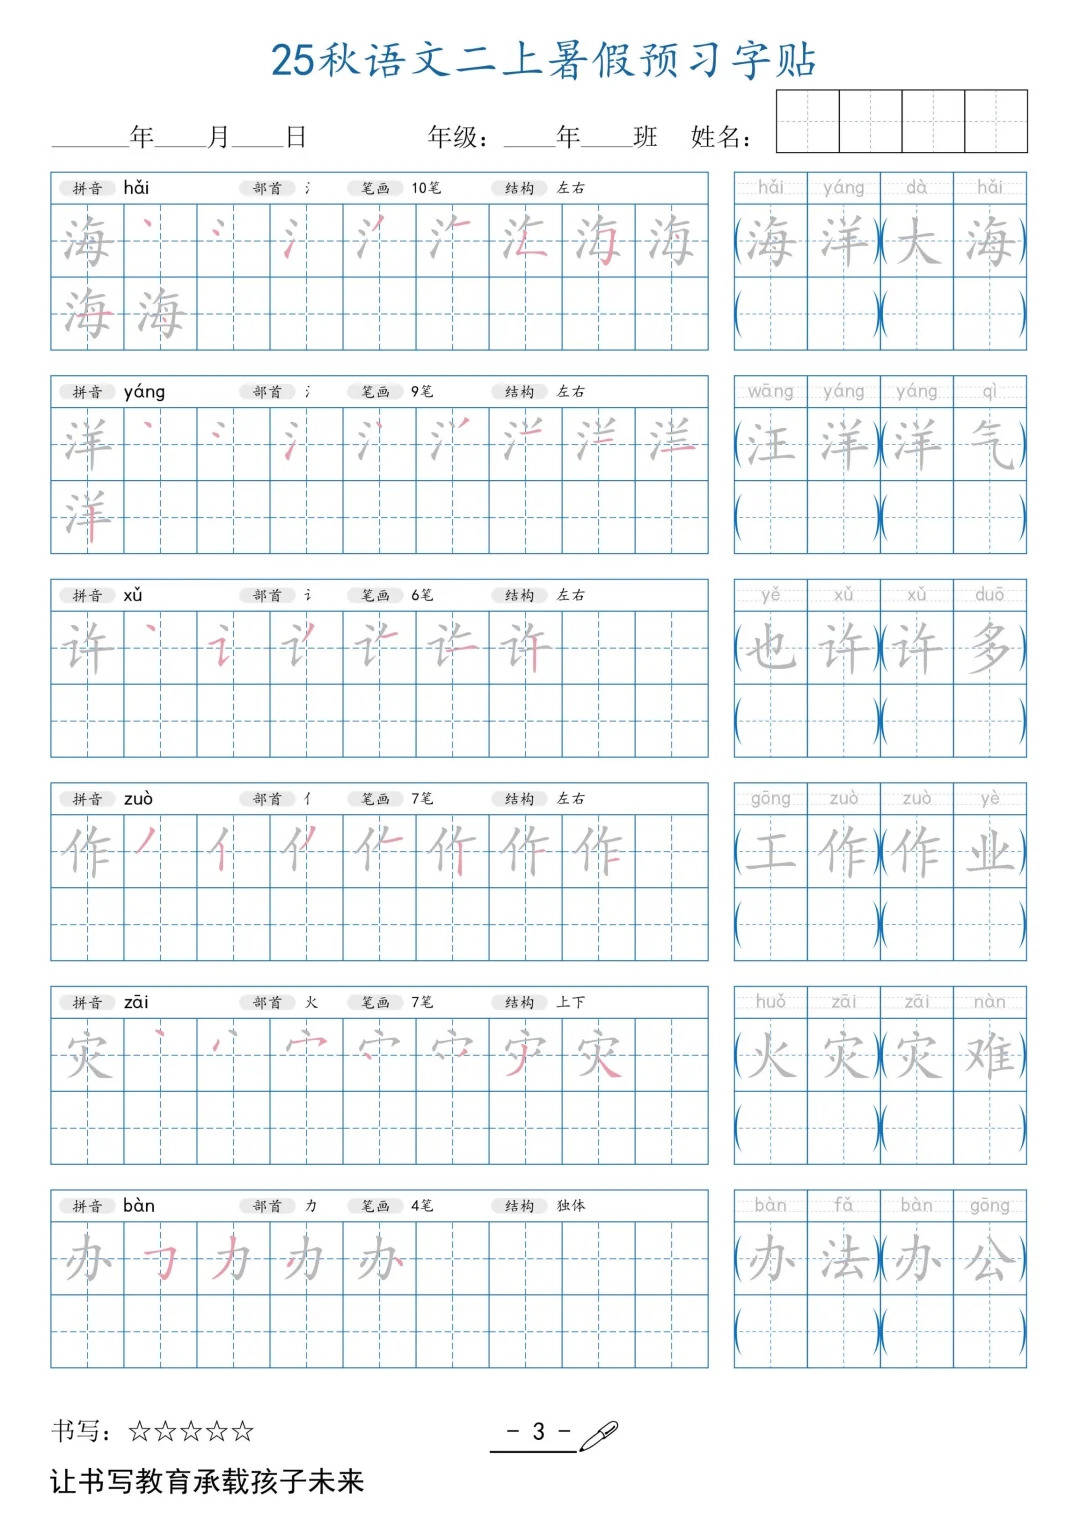 25秋语文二上暑假预习字贴
______年____月____日 年级：____年____班 姓名：
拼音 hǎi 部首 氵 笔画 10笔 结构 左右
hǎi yáng dà hǎi
海 丶 冫 氵 海 海
(海 洋)(大 海)
海 海
拼音 yáng 部首 氵 笔画 9笔 结构 左右
wāng yáng yáng qì
洋
(汪 洋)(洋 气)
洋
拼音 xǔ 部首 讠 笔画 6笔 结构 左右
yě xǔ xǔ duō
许 丶 讠 许
(也 许)(许 多)
拼音 zuò 部首 亻 笔画 7笔 结构 左右
gōng zuò zuò yè
作 丿 亻 作
(工 作)(作 业)
拼音 zāi 部首 火 笔画 7笔 结构 上下
huǒ zāi zāi nàn
灾 丶 宀 灾
(火 灾)(灾 难)
拼音 bàn 部首 力 笔画 4笔 结构 独体
bàn fǎ bàn gōng
办 力 办
(办 法)(办 公)
书写：☆☆☆☆☆
- 3 -
让书写教育承载孩子未来